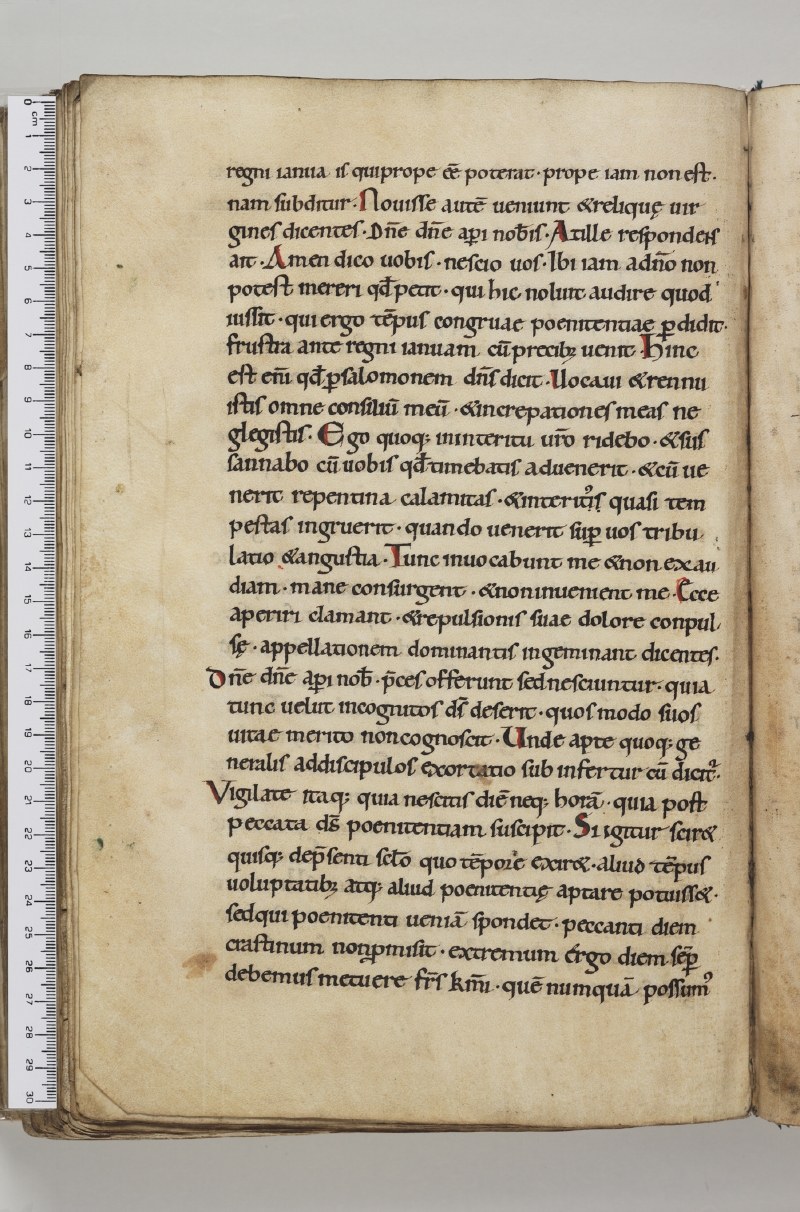 regni ianua is qui prope eē poterat · prope iam non est ·
nam subditur · Nouisse autē ueniunt &relique uir
gines dicentes · Dn̄e dn̄e ap̱i nob̄is · At ille respondens
ait · Amen dico uobis · nescio uos · Ibi iam a dn̄o non
potest mereri qd̄ petit · qui hic noluit audire quod
iussit · qui ergo tēpus congruae poenitentiae ꝑdidit ·
frustra ante regni ianuam cū precibꝫ uenit · Hinc
est enī qd̄ ꝑ salomonem dn̄s dicit · Uocaui &rennu
istis omne consiliū meū · &increpationes meas ne
glegistis · Ego quoqꝫ in interitu ur̄o ridebo · &sus
sannabo cū uobis qd̄ timebatis aduenerit · &cū ue
nerit repentina calamitas · &interitꝰ is quasi tem
pestas ingruerit · quando uenerit suꝑ uos tribu
latio &angustia · Tunc inuocabunt me &non exau
diam · mane consurgent · &non inuenient me · Ecce
aperiri clamant · &repulsionis suae dolore conpul
sę · appellationem dominantis ingeminant dicentes ·
Dn̄e dn̄e ap̱i nob̄ · p̄ces offerunt sed nesciuntur · quia
tunc uelut incognitos ds̄ deserit · quos modo suos
uitae merito non cognoscit · Unde apte quoqꝫ ge
neralis ad discipulos exortatio subinfertur cū dicit̄ ·
Vigilate itaqꝫ quia nescitis diē neqꝫ horā · quia post
peccata ds̄ poenitentiam suscipit · Si igitur scir&
quisqꝫ de p̄senti sc̄lo quo tēpore exir& · aliud tēpus
uoluptatibꝫ atqꝫ aliud poenitentię aptare potuiss& ·
sed qui poenitenti ueniā spondet · peccanti diem
crastinum non ꝓmisit · extremum ergo diem sēꝑ
debemus metuere fr̄s km̄i · quē numquā possumꝰ